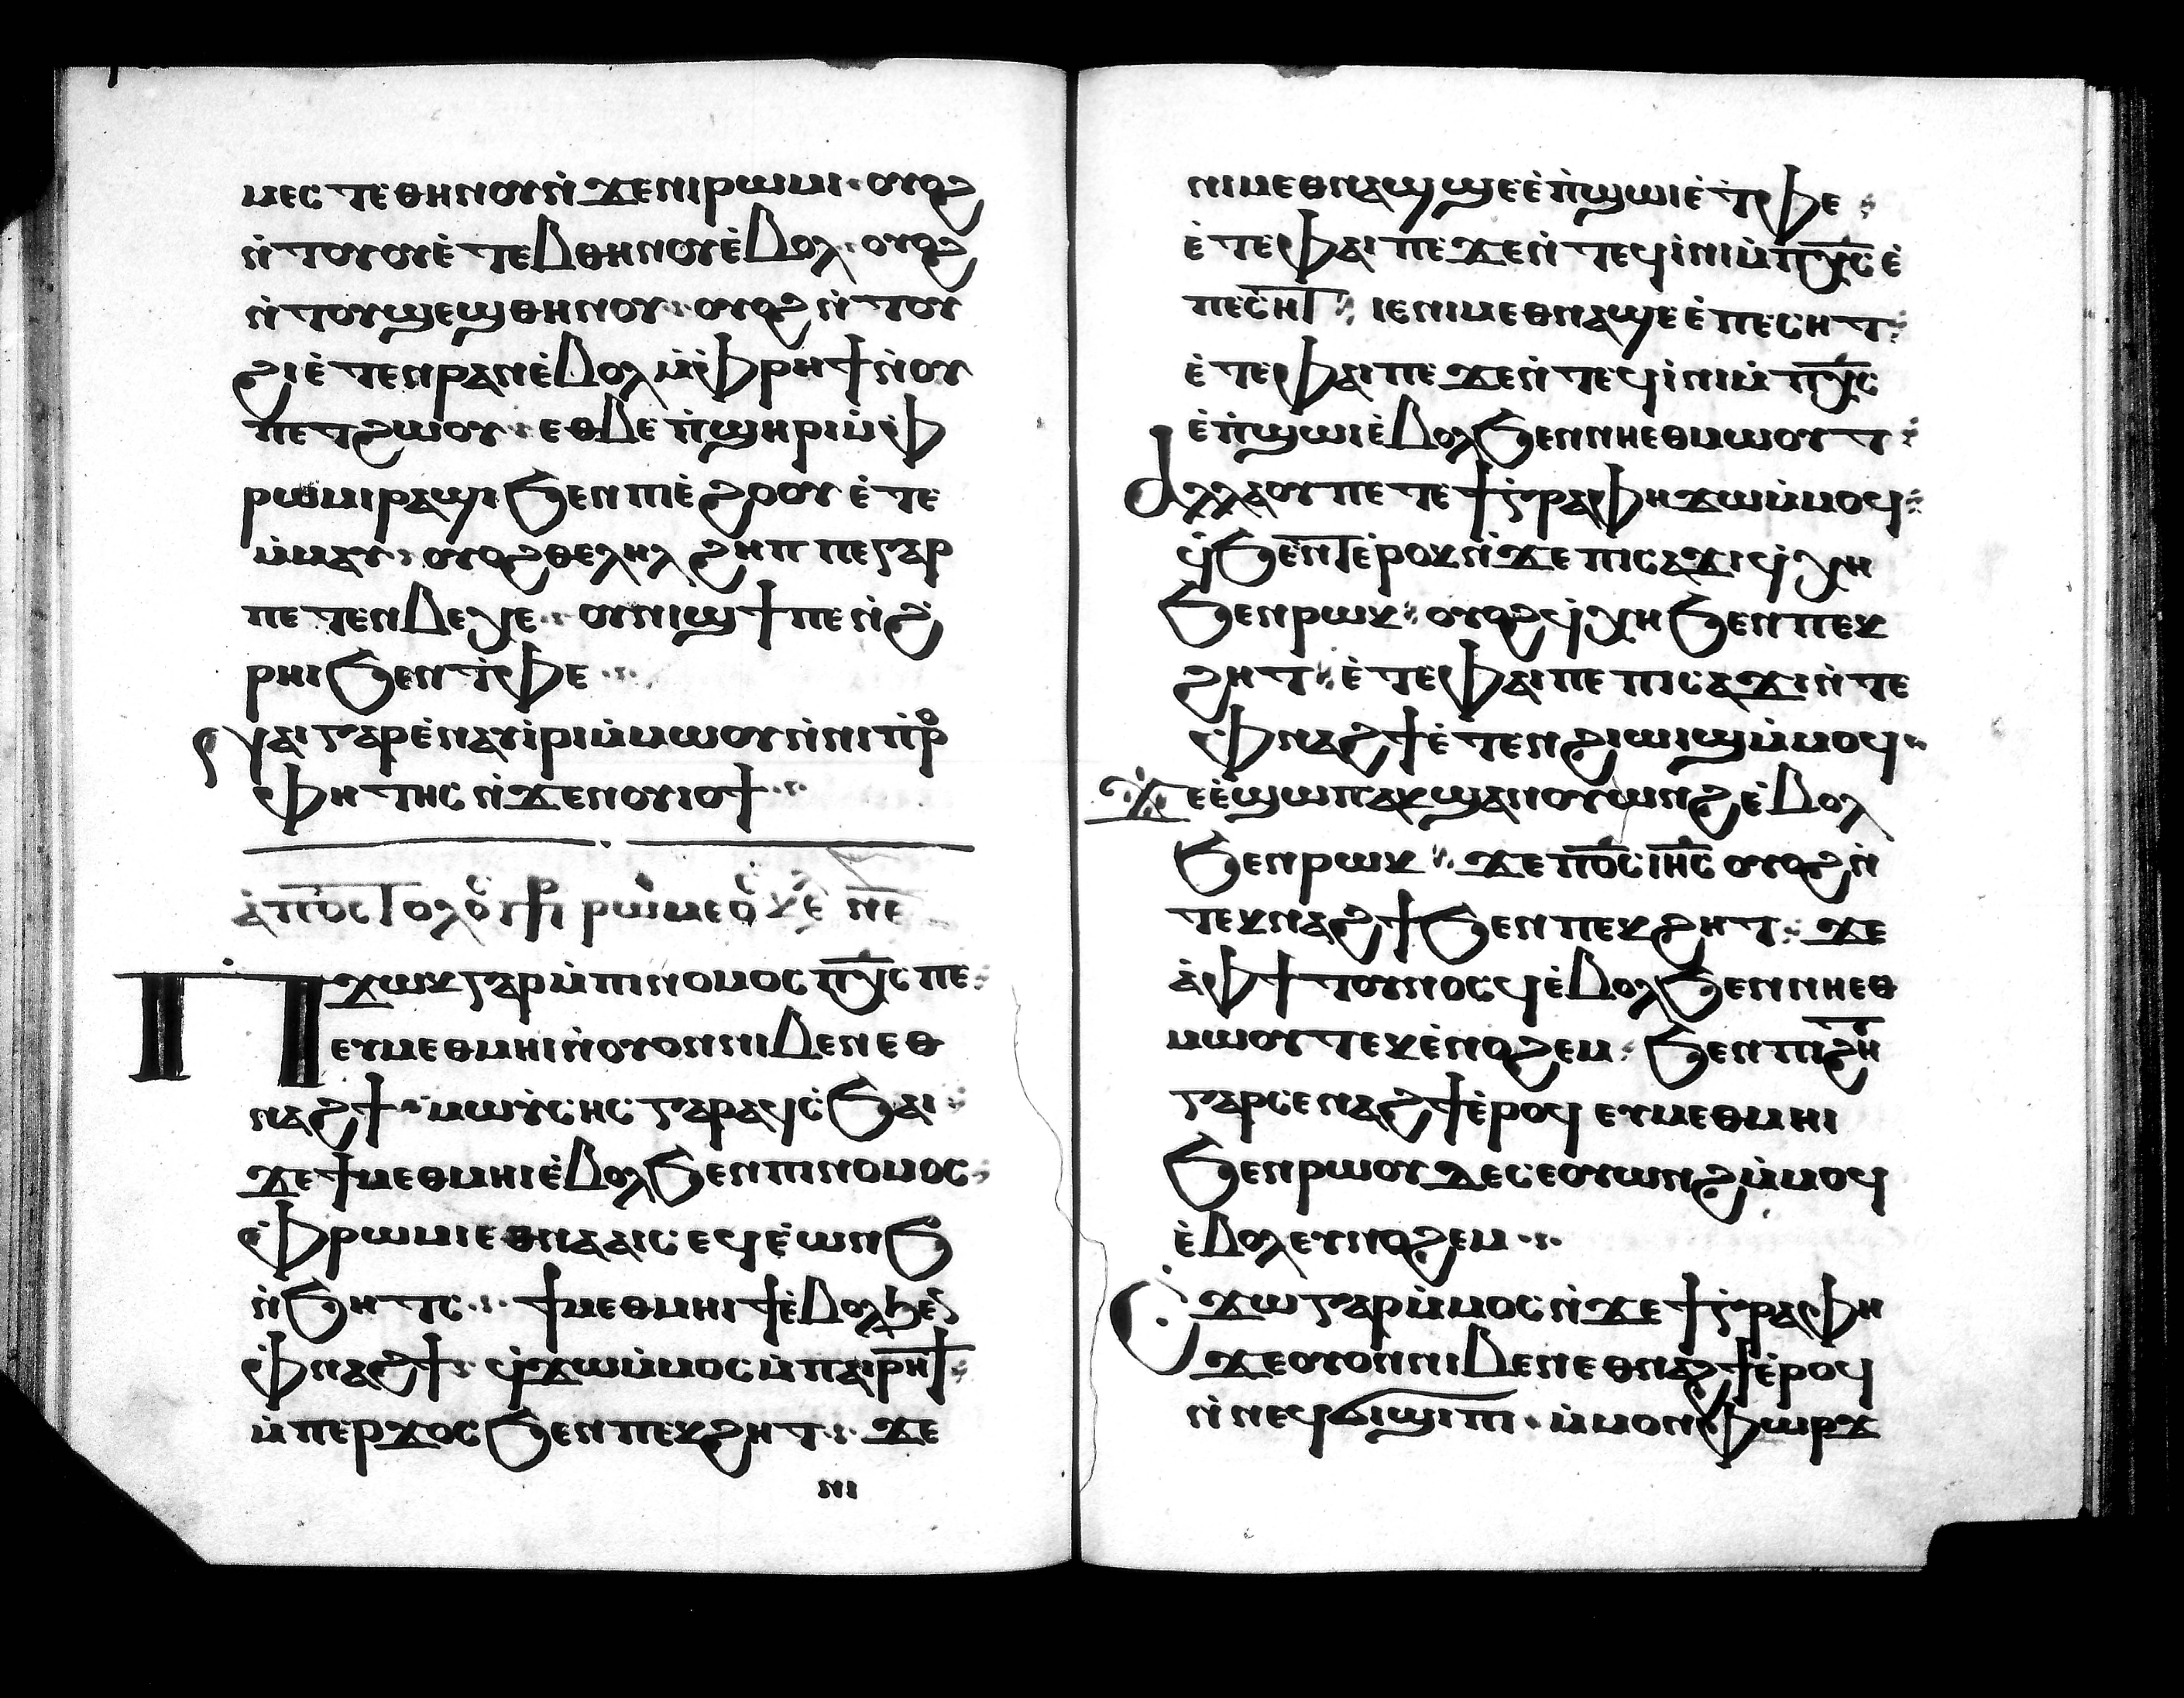 ⲙⲉⲥⲧⲉⲑⲏⲛⲟⲩⲛ̀ϫⲉⲛⲓⲣⲱⲙⲓ· ⲟⲩⲟϩ
ⲛ̀ⲧⲟⲩⲟⲩⲉ̀ⲧⲉⲃⲑⲏⲛⲟⲩⲉ̀ⲃⲟⲗ· ⲟⲩⲟϩ
ⲛ̀ⲧⲟⲩϣⲉϣⲑⲏⲛⲟⲩ· ⲟⲩⲟϩ ⲛ̀ⲧⲟⲩ
ϩⲓⲉ̀ⲧⲉⲛⲣⲁⲛⲉ̀ⲃⲟⲗ ⲙ̀ⲫ̀ⲣⲏϯⲛ̀ⲟⲩ
ⲡⲉⲧϩⲱⲟⲩ· ⲉⲑⲃⲉ ⲡ̀ϣⲏⲣⲓⲙ̀ⲫ̀
ⲣⲱⲙⲓⲣⲁϣⲓ ϧⲉⲛⲡⲓⲉ̀ϩⲟⲟⲩ ⲉ̀ⲧⲉ
ⲙ̀ⲙⲁⲩ· ⲟⲩⲟϩ ⲑⲉⲗⲏⲗ ϩⲏⲡⲡⲉⲅⲁⲣ
ⲡⲉⲧⲉⲛⲃⲉⲭⲉ· ⲟⲩⲛⲓϣϯⲡⲉ ⲛ̀ϩ̀
ⲣⲏⲓϧⲉⲛⲧ̀ⲫⲉ ·:·
ⲛⲁⲓⲅⲁⲣⲉ̀ⲛⲁⲩⲓ̀ⲣⲓⲙ̀ⲙⲱⲟⲩⲛ̀ⲛⲓⲡ̀ⲣⲟ
ⲫⲏⲧⲏⲥ ⲛ̀ϫⲉⲛⲟⲩⲓⲟϯ ·:·
ⲡϫⲱⲕⲅⲁⲣⲙ̀ⲡⲓⲛⲟⲙⲟⲥ ⲡⲭ̅ⲥ̅ ⲡⲉ:
ⲉⲩⲙⲉⲑⲙⲏⲓⲛ̀ⲟⲩⲟⲛⲛⲓⲃⲉⲛⲉⲑ
ⲛⲁϩϯ· ⲙⲱⲩ̀ⲥⲏⲥ ⲅⲁⲣⲁϥⲥ̀ϧⲁⲓ:
ϫⲉϯⲙⲉⲑⲙⲏⲓⲉ̀ⲃⲟⲗϧⲉⲛⲡⲓⲛⲟⲙⲟⲥ:
ⲫ̀ⲣⲱⲙⲓⲉⲑⲛⲁⲁⲓⲥ ⲉϥⲉ̀ⲱⲛϧ
ⲛ̀ϧⲏⲧⲥ ·:· ϯⲙⲉⲑⲙⲏⲓϯⲉ̀ⲃⲟⲗϧⲉⲛ
ⲫ̀ⲛⲁϩϯ: ϥ̀ϫⲱⲙ̀ⲙⲟⲥ ⲙ̀ⲡⲁⲓⲣⲏϯ:
ⲙ̀ⲡⲉⲣϫⲟⲥϧⲉⲛⲡⲉⲕϩⲏⲧ: ϫⲉ
ⲛⲓ
ⲛⲓⲙⲉⲑⲛⲁϣϣⲉⲉ̀ⲡ̀ϣⲱⲓⲉ̀ⲧ̀ⲫⲉ:
ⲉ̀ⲧⲉⲫⲁⲓⲡⲉ ϫⲉⲛ̀ⲧⲉϥⲓ̀ⲛⲓⲙ̀ⲡⲭ̅ⲥ̅ ⲉ̀
ⲡⲉⲥⲏⲧ: ⲓⲉⲛⲓⲙⲉⲑⲛⲁϣⲉ ⲉ̀ⲡⲉⲥⲏⲧ:
ⲉ̀ⲧⲉⲫⲁⲓⲡⲉ ϫⲉⲛ̀ⲧⲉϥⲓ̀ⲛⲓⲙ̀ⲡⲭ̅ⲥ̅
ⲉ̀ⲡ̀ϣⲱⲓⲉ̀ⲃⲟⲗϧⲉⲛⲛⲏⲉⲑⲙⲱⲟⲩⲧ:
ⲁⲗⲗⲁⲟⲩⲡⲉⲧⲉϯⲅ̀ⲣⲁⲫⲏϫⲱⲙ̀ⲙⲟϥ:
ϥ̀ϧⲉⲛⲧⲉ̀ⲣⲟⲕⲛ̀ϫⲉ ⲡⲓⲥⲁϫⲓϥ̀ⲭⲏ
ϧⲉⲛⲣⲱⲕ: ⲟⲩⲟϩϥ̀ⲭⲏϧⲉⲛⲡⲉⲕ
ϩⲏⲧ: ⲉ̀ⲧⲉⲫⲁⲓⲡⲉ ⲡⲓⲥⲁϫⲓⲛ̀ⲧⲉ
ⲫ̀ⲛⲁϩϯⲉ̀ⲧⲉⲛϩⲓⲱⲓϣⲙ̀ⲙⲟϥ:
ϫⲉⲉ̀ϣⲱⲡⲁⲕϣⲁⲛⲟⲩⲱⲛϩⲉ̀ⲃⲟⲗ
ϧⲉⲛⲣⲱⲕ: ϫⲉ ⲡⲟ̅ⲥ̅ ⲓⲏ̅ⲥ̅ ⲟⲩⲟϩⲛ̀
ⲧⲉⲕⲛⲁϩϯϧⲉⲛⲡⲉⲕϩⲏⲧ: ϫⲉ
ⲁ̀ⲫϯⲧⲟⲩⲛⲟⲥϥⲉ̀ⲃⲟⲗϧⲉⲛⲛⲏⲉⲑ
ⲙⲱⲟⲩⲧⲉⲕⲉ̀ⲛⲟϩⲉⲙ: ϧⲉⲛⲡⲓϩⲏⲧ
ⲅⲁⲣⲥⲉⲛⲁϩϯⲉ̀ⲣⲟϥ ⲉⲩⲙⲉⲑⲙⲏⲓ
ϧⲉⲛⲣⲱⲟⲩⲇⲉⲥⲉⲟⲩⲱⲛϩⲙ̀ⲙⲟϥ
ⲉ̀ⲃⲟⲗⲉⲩⲛⲟϩⲉⲙ ·:·
ⲥ̀ϫⲱⲅⲁⲣⲙ̀ⲙⲟⲥⲛ̀ϫⲉϯⲅ̀ⲣⲁⲫⲏ
ϫⲉⲟⲩⲟⲛⲛⲓⲃⲉⲛⲉⲑⲛⲁϩϯⲉ̀ⲣⲟϥ
ⲛ̀ⲛⲉϥϭⲓϣⲓⲡⲓ· ⲙ̀ⲙⲟⲛⲫⲱⲣϫ